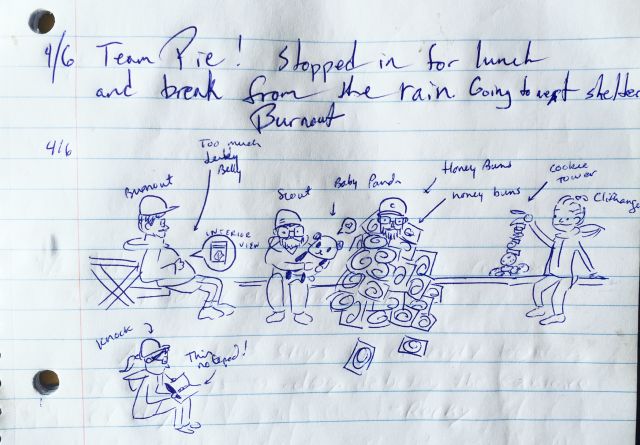 4/6 Team Pie! Stopped in for lunch
and break from the rain Going to next shelter
Burnout
4/6
Too much
Jerky
Belly
Burnout
INTERIOR
VIEW
Scout
Baby Panda
Honey Buns
honey buns
cookie
tower
Cliffhanger
Knock
This
notepad!